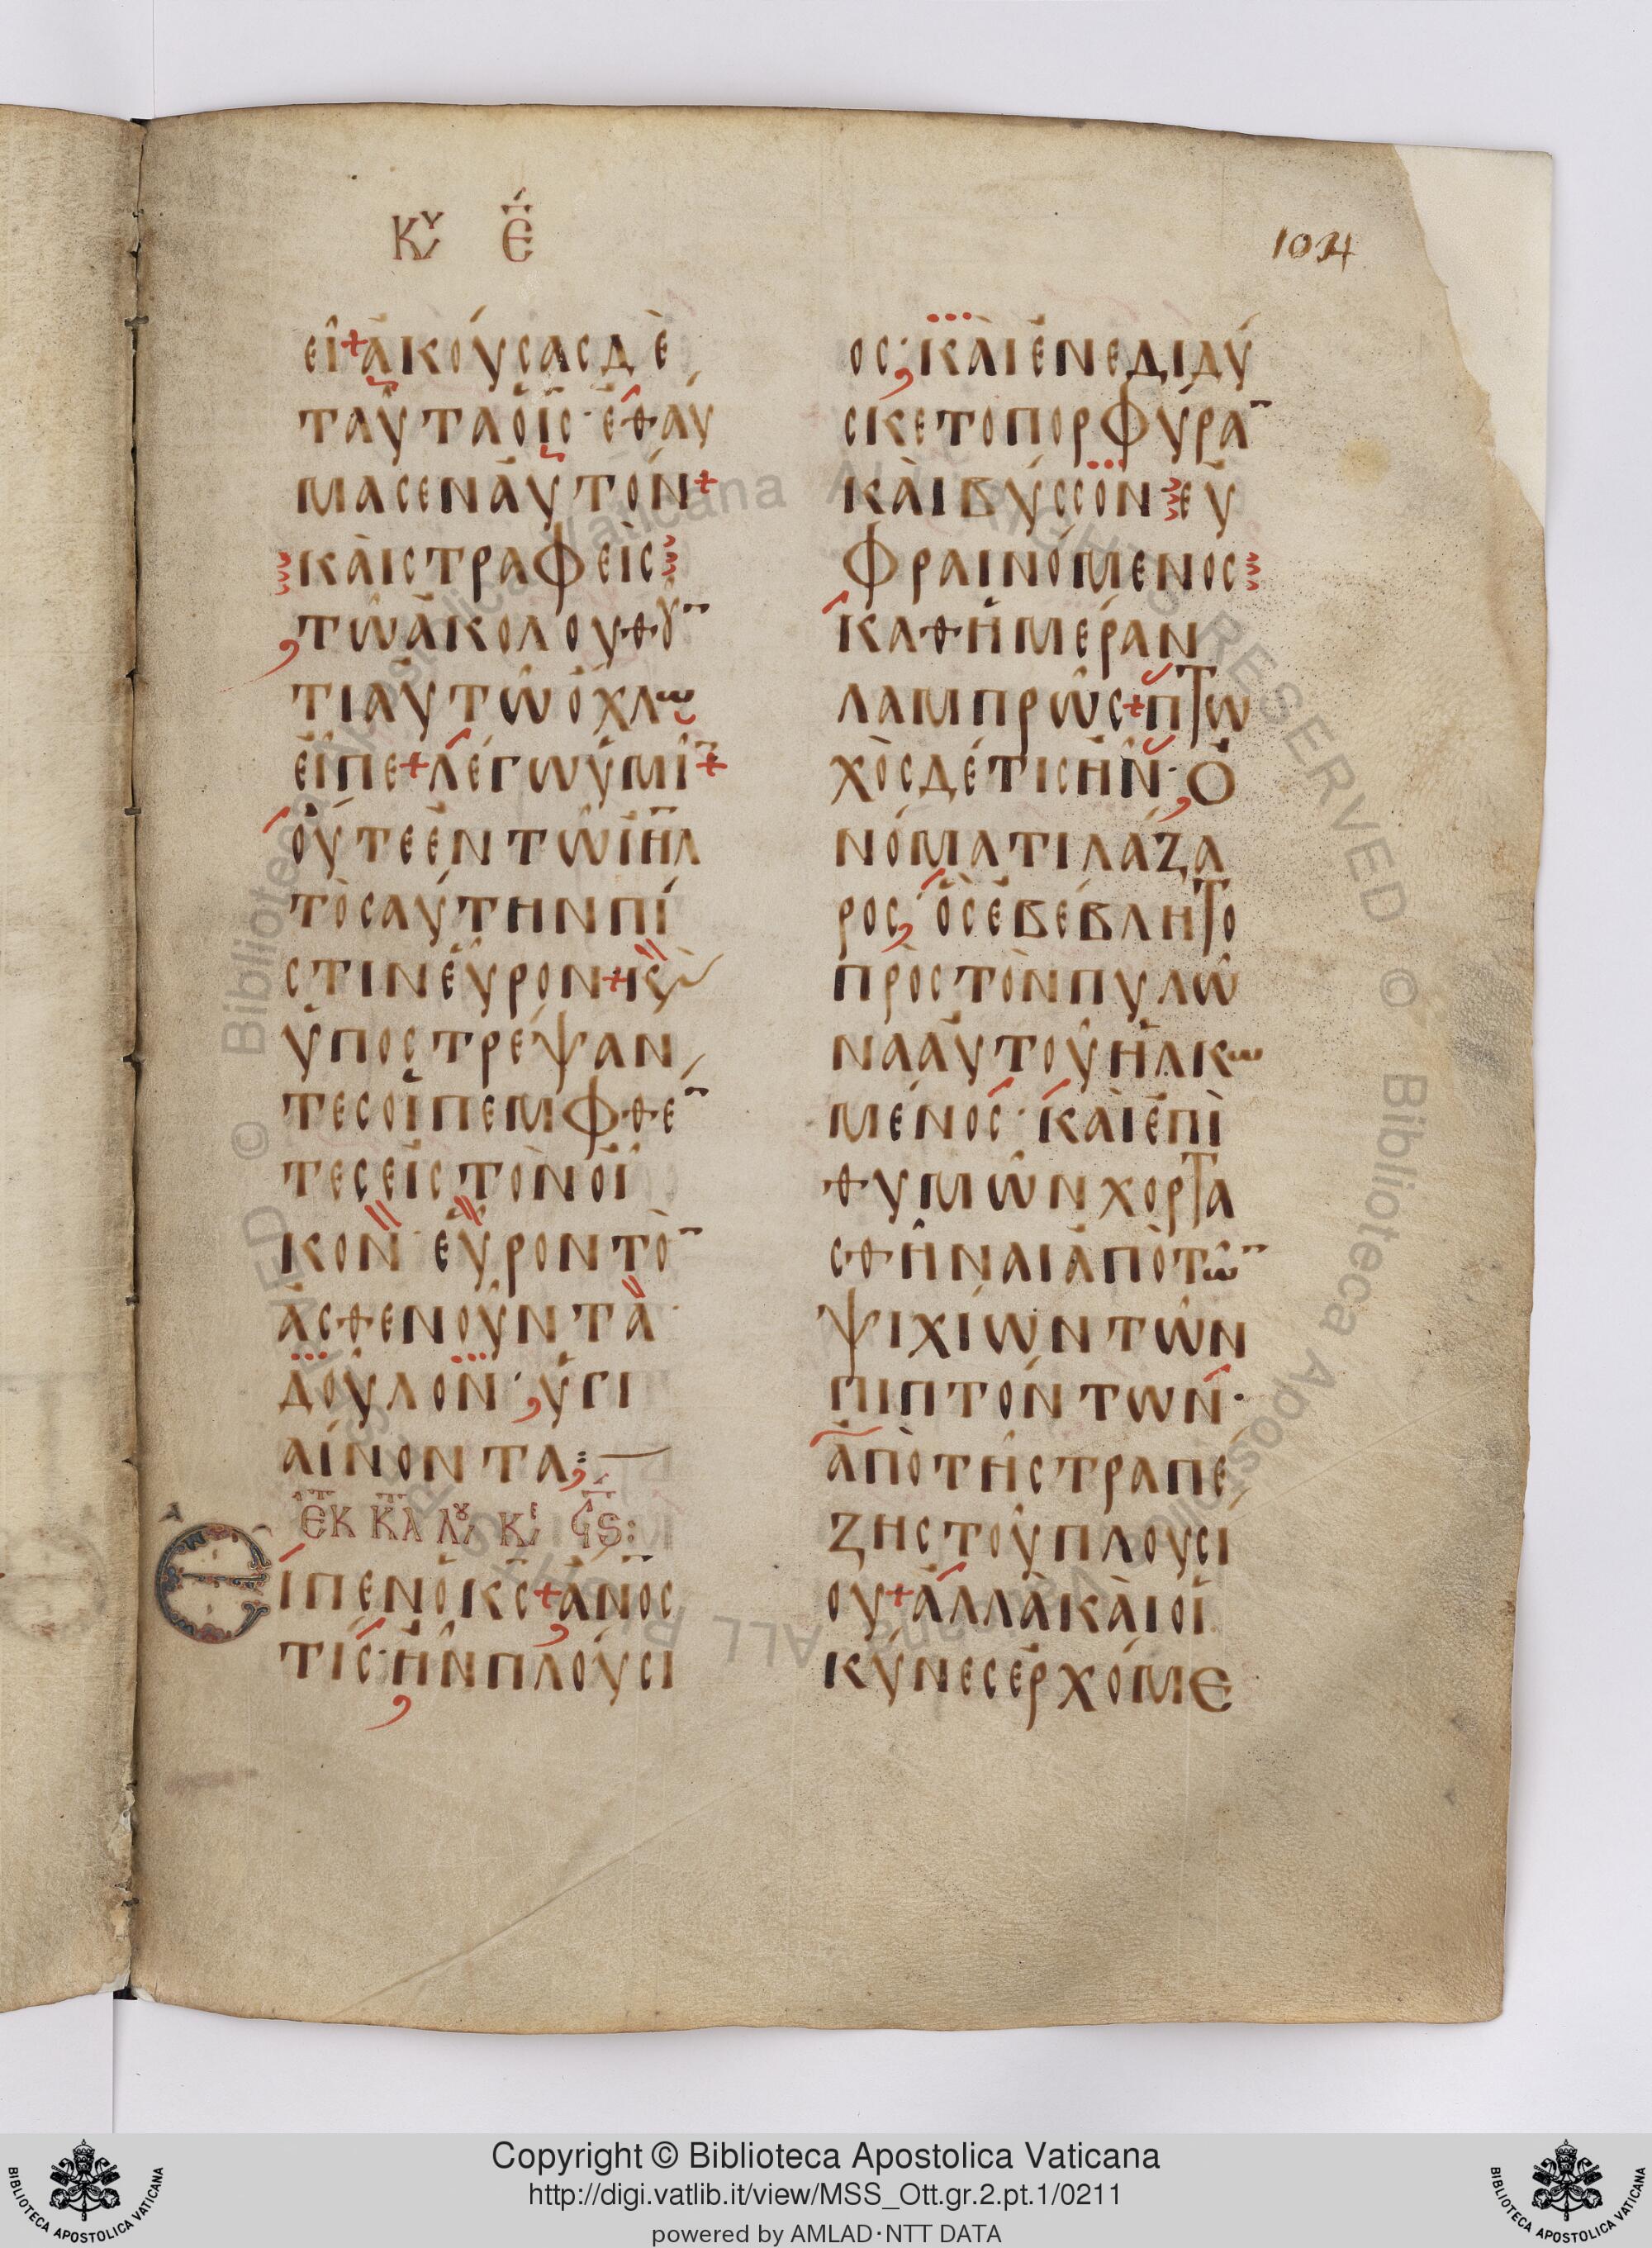 Κυ Ε
104
εῖ+ἀκούσας δὲ
ταῦτα ὁ ἰς· ἐθαύ
μασεν ἀυτόν+
καὶ στραφεὶς
τῶ ἀκολουθοῦ̄
τι αυτῶ ὄχλω
εἶπε+λέγω ὑμῖ̄+
οὔτε ἐν τῶ ἰηλ
τοσάυτην πί
στιν ἑῦρον+κὶ
ὑποστρέψαν
τες οἱ πεμφθέ̄
τες εἰς τὸν οἶ
κον· ἑῦρον τὸ̄
ἀσθενοῦντα·
δοῦλον· ὑγι
αίνοντα:—
ἐκ κλ λου κε ϛ:
Εἶπεν ὁ κς+ἀνος
τίς· ἦν πλούσι
ος· καὶ ἐνεδιδύ
σκετο πορφύρᾱ
καὶ βύσσον· ἐυ
φραινόμενος
καθημέραν
λαμπρῶς+πτω
χὸς δέ τις ἦν· ὀ
νόματι λάζα
ρος, ὃς ἐβέβλητο
πρὸς τὸν πυλῶ
να ἀυτοῦ ἡλκω
μένος· καὶ ἐπι
θυμῶν χορτα
σθῆναι ἀπὸ τῶ̄
ψιχίων τῶν
πιπτόντων·
ἀπὸ τῆς τραπέ
ζης τοῦ πλουσί
ου+ἀλλὰ καὶ οἱ
κύνες ἐρχόμε
Copyright © Biblioteca Apostolica Vaticana
http://digi.vatlib.it/view/MSS_Ott.gr.2.pt.1/0211
powered by AMLAD·NTT DATA
BIBLIOTECA APOSTOLICA VATICANA
BIBLIOTECA APOSTOLICA VATICANA